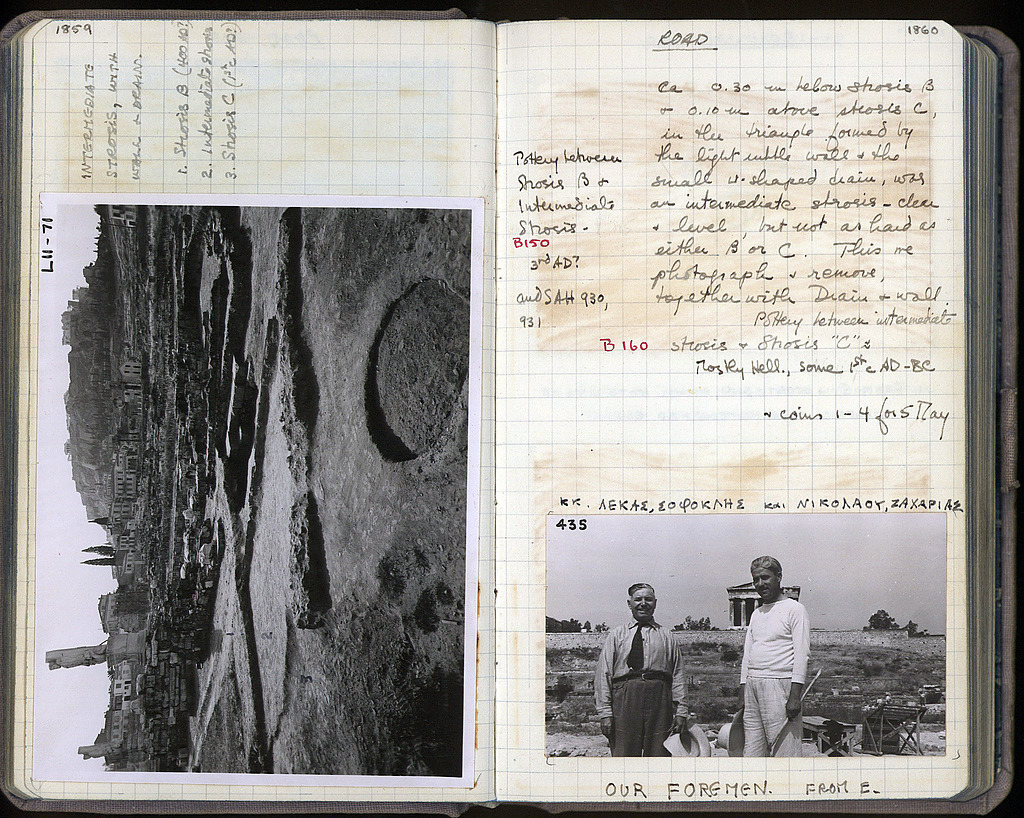 1859
INTERMEDIATE
STROSIS, WITH
WALL + DRAIN.
1. Strosis B (400 AD?)
2. Intermediate strosis
3. Strosis C (1st c AD?)
LII-71
1860
ROAD
ca 0.30 m below strosis B
+ 0.10 m above strosis C,
in the triangle formed by
the light rubble wall + the
small u-shaped drain, was
an intermediate strosis - clear
+ level, but not as hard as
either B or C. This we
photograph + remove,
together with Drain + wall.
Pottery between
Strosis B +
Intermediate
Strosis -
B150
3rd AD?
and SAH 930,
931
Pottery between intermediate
B160 strosis + Strosis "C":
Mostly Hell., some 1st c AD-BC
+ coins 1-4 for 5 May
ΚΚ. ΛΕΚΑΣ, ΣΟΦΟΚΛΗΣ και ΝΙΚΟΛΑΟΥ, ΖΑΧΑΡΙΑΣ
435
OUR FOREMEN. FROM E.